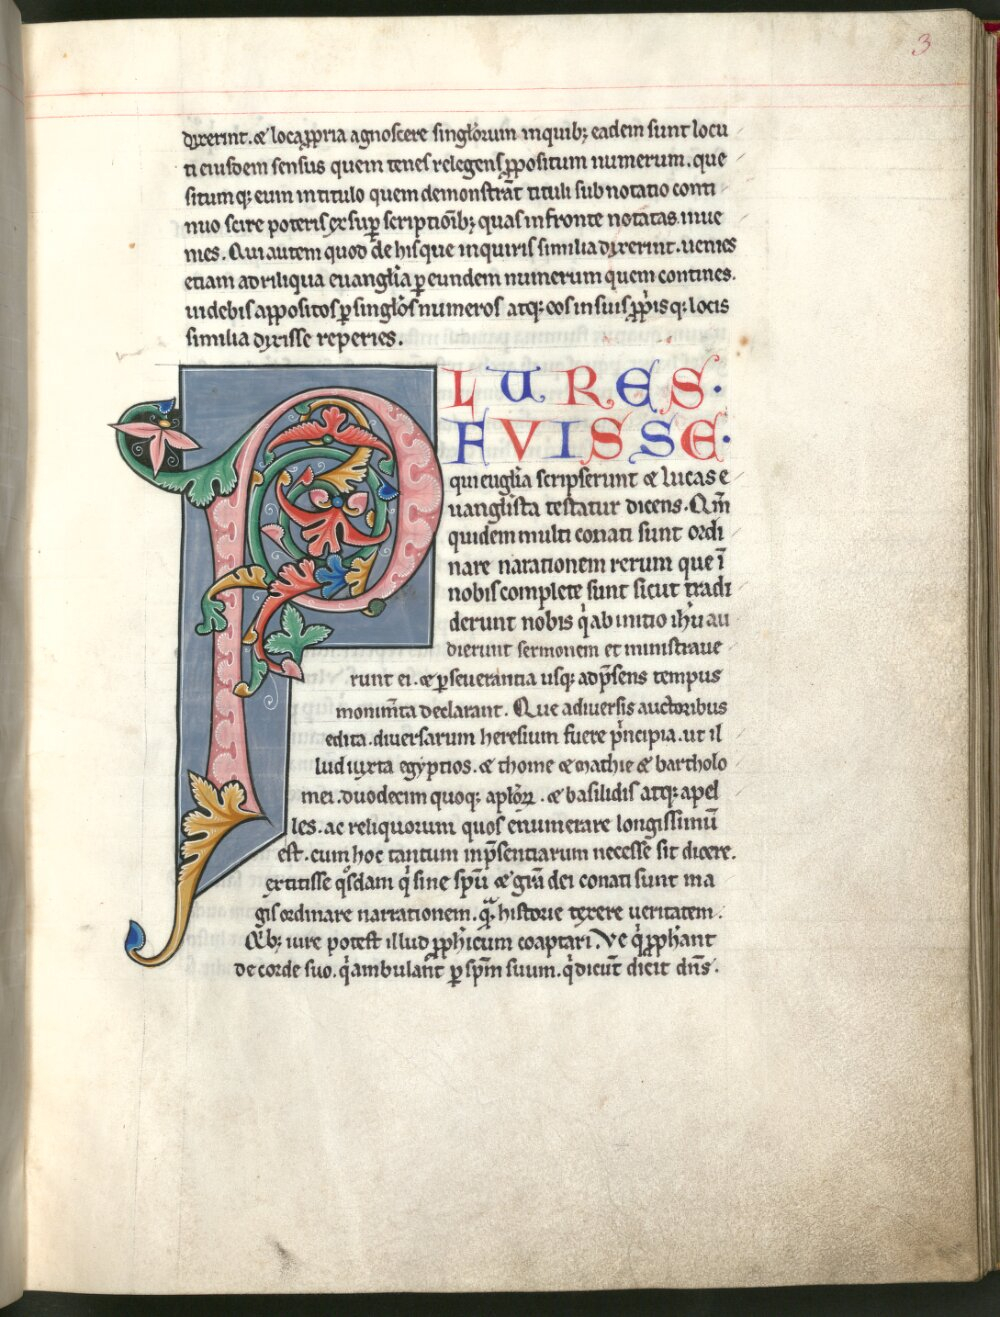 3
dixerint. & loca ꝓpria agnoscere singl̄orum in quib; eadem sunt locu
ti eiusdem sensus quem tenes relegens ꝓpositum numerum. que
situmq; eum in titulo quem demonstrāt tituli subnotatio conti
nuo scire poteris ex suꝑ scriptiōib; quas in fronte notatas inue
nies. Qui autem quod de his que inquiris similia dixerint. uenies
etiam ad reliqua euangl̄ia ꝑ eundem numerum quem contines.
uidebis appositos ꝑ singl̄os numeros atq; eos in suis ꝓp̄isq; locis
similia dixisse reperies.
PLURES.
FVISSE.
qui eugl̄ia scripserunt & lucas e
uangl̄ista testatur dicens. Qm̄
quidem multi conati sunt ordi
nare narationem rerum que ī
nobis complete sunt sicut tradi
derunt nobis q̇ ab initio ihū au
dierunt sermonem et ministraue
runt ei. & ꝑseuerantia usq; ad p̄sens tempus
monim̄ta declarant. Que a diuersis auctoribus
edita. diuersarum heresium fuere p̄ncipia. ut il
lud iuxta egyptios. & thome & mathie & bartholo
mei. duodecim quoq; apl̄oꝝ. & basilidis atq; apel
les. ac reliquorum quos enumerare longissimū
est. cum hoc tantum inp̄sentiarum necesse sit dicere.
extitisse q̊sdam q̇ sine spū & gr̄a dei conati sunt ma
gis ordinare narrationem. q̄ᷓ historie texere ueritatem.
Qib; iure potest illud ꝓph̄icum coaptari. Ve q̇ ꝓph̄ant
de corde suo. q̇ ambulant̄ ꝑ spm̄ suum. q̇ dicūt dicit dn̄s.